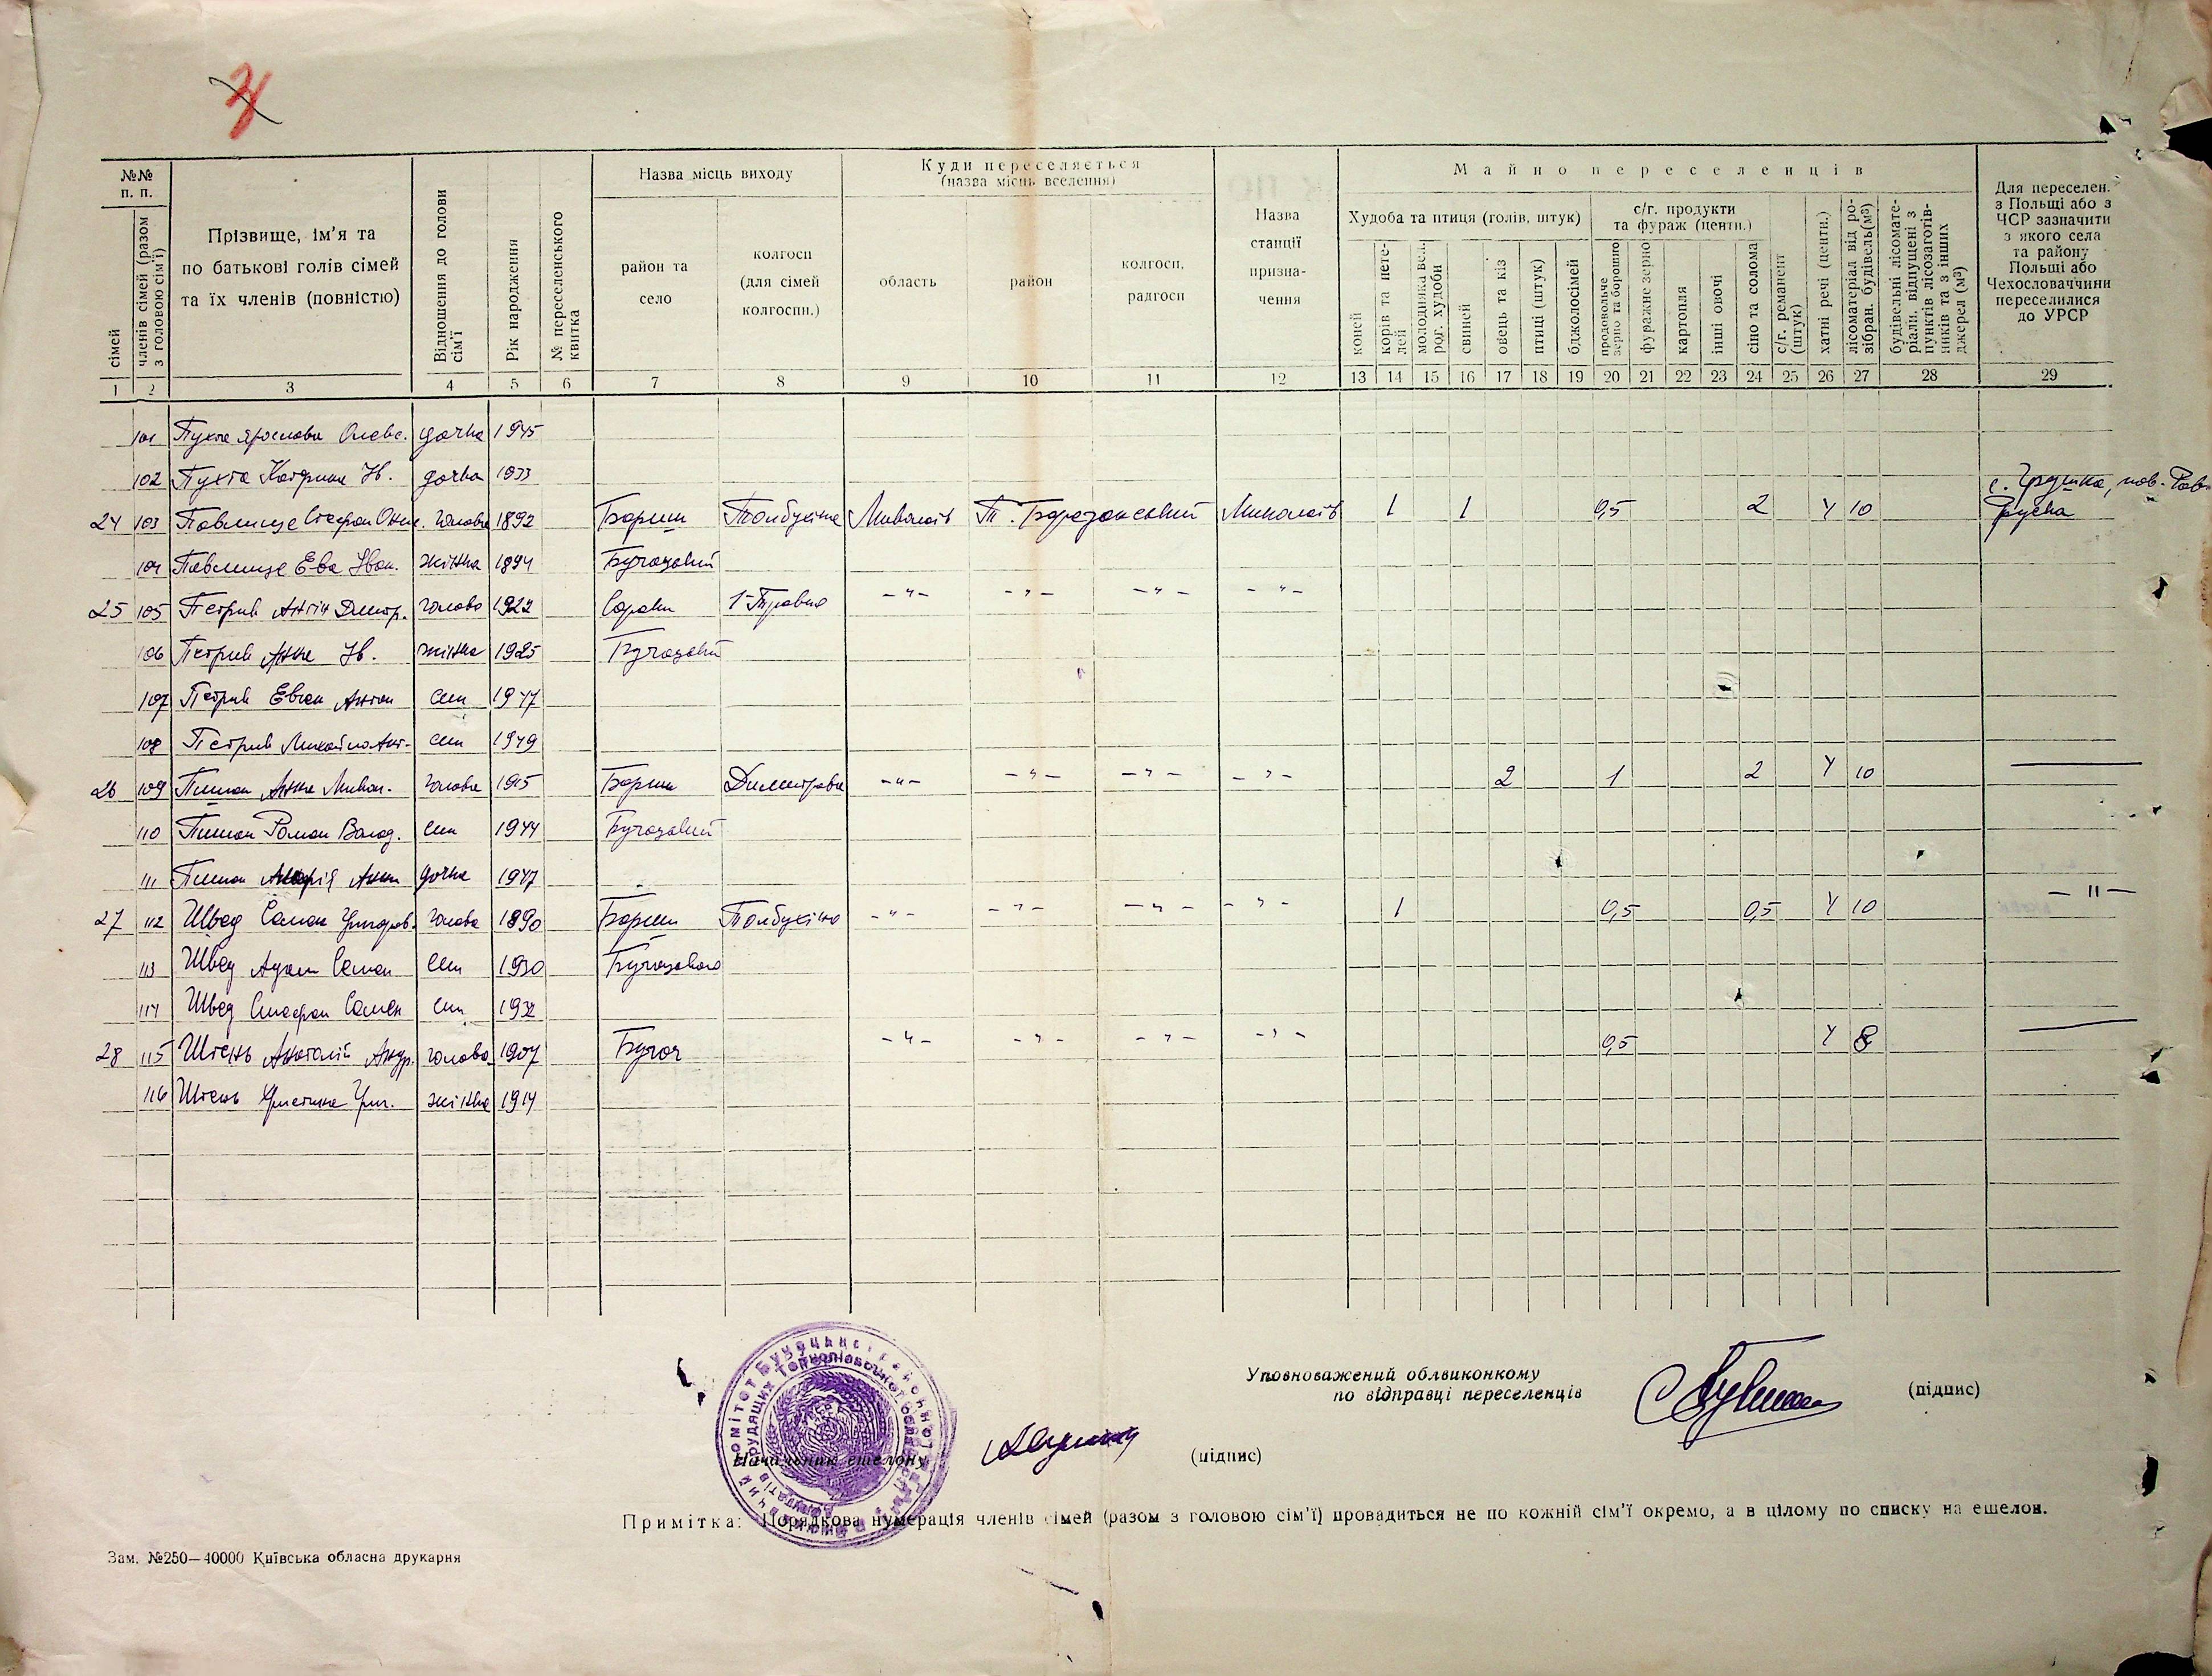 №№ п. п.
сімей
членів сімей (разом з головою сім'ї)
Прізвище, ім'я та по батькові голів сімей та їх членів (повністю)
Відношення до голови сім'ї
Рік народження
№ переселенського квитка
Назва місць виходу
район та село
колгосп (для сімей колгоспн.)
Куди переселяється
(назва місць вселення)
область
район
колгосп, радгосп
Назва станції призна-чення
Майно переселенців
Худоба та птиця (голів, штук)
коней
корів та нете-лей
молодняка вел. рог. худоби
свиней
овець та кіз
птиці (штук)
бджолосімей
с/г. продукти та фураж (центн.)
продовольче зерно та борошно
фуражне зерно
картопля
інші овочі
сіно та солома
с/г. реманент (штук)
хатні речі (центн.)
лісоматеріал від ро-зібран. будівель(м³)
будівельні лісомате-ріали, відпущені з пунктів лісозаготів-ників та з інших джерел (м³)
Для переселен. з Польщі або з ЧСР зазначити з якого села та району Польщі або Чехословаччини переселилися до УРСР
1 2 3 4 5 6 7 8 9 10 11 12 13 14 15 16 17 18 19 20 21 22 23 24 25 26 27 28 29
101 Пухта Ярослава Олекс. дочка 1945
102 Пухта Катрина Ів. дочка 1933
24 103 Павлище Стефан голова 1892 Бариш Толбухіна Миколаїв Т. Березанський Миколаїв 1 1 0,5 2 4 10 с. пов. Рав-Руска
104 Павлище Ева Іван. жінка 1894 Бучацький
25 105 Петрив Антін Дмитр. голова 1922 Сороки 1-Травня -"- -"- -"- -"-
106 Петрив Анна Ів. жінка 1925 Бучацький
107 Петрив Евген Антон син 1947
108 Петрив Михайло Ант. син 1949
26 109 Анна Микол. голова 1915 Бариш Димитрова -"- -"- -"- -"- 2 1 2 4 10
110 Роман Волод. син 1944 Бучацький
111 Марія дочка 1947
27 112 Швед Семен Григоров. голова 1890 Бариш Толбухіна -"- -"- -"- -"- 1 0,5 0,5 4 10 -"-
113 Швед Адам Семен син 1930 Бучацького
114 Швед Стефан Семен син 1932
28 115 Штень Анатолій Андр. голова 1907 Бучач -"- -"- -"- -"- 0,5 4 8
116 Штень Христина Григ. жінка 1914
Уповноважений облвиконкому
по відправці переселенців
(підпис)
Начальник ешелону
(підпис)
Примітка: Порядкова нумерація членів сімей (разом з головою сім'ї) провадиться не по кожній сім'ї окремо, а в цілому по списку на ешелон.
Зам. №250—40000 Київська обласна друкарня